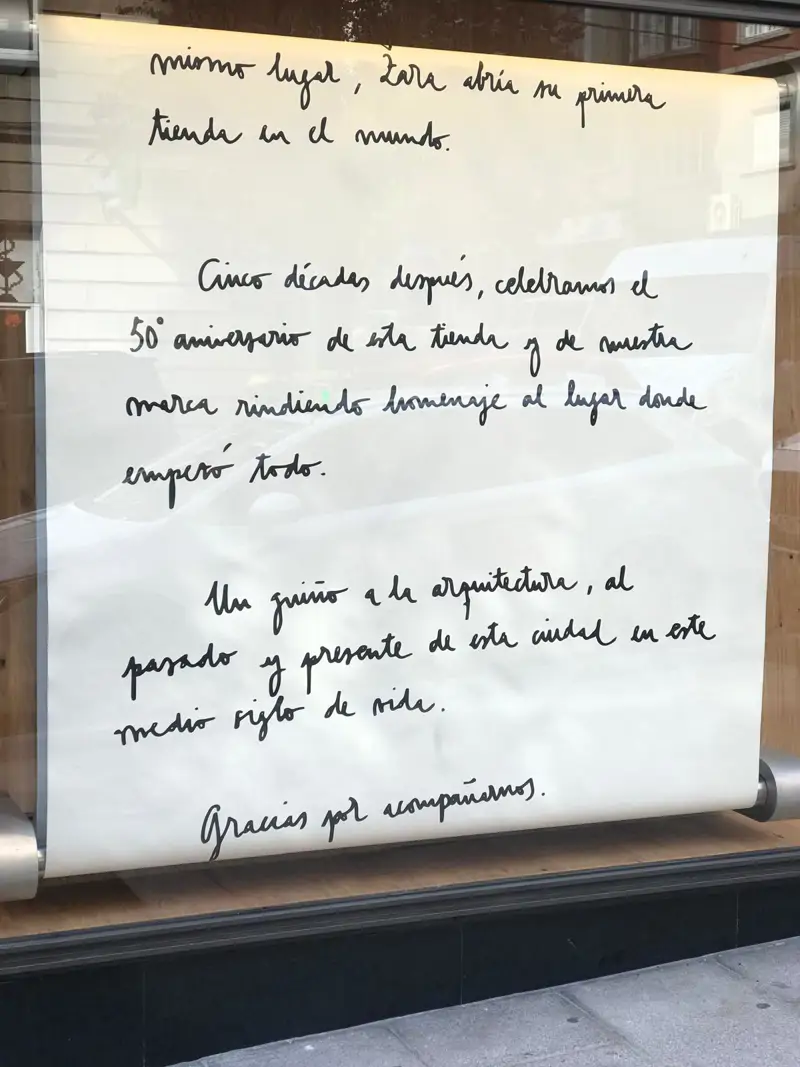 mismo lugar, Zara abría su primera
tienda en el mundo.
Cinco décadas después, celebramos el
50° aniversario de esta tienda y de nuestra
marca rindiendo homenaje al lugar donde
empezó todo.
Un guiño a la arquitectura, al
pasado y presente de esta ciudad en este
medio siglo de vida.
Gracias por acompañarnos.